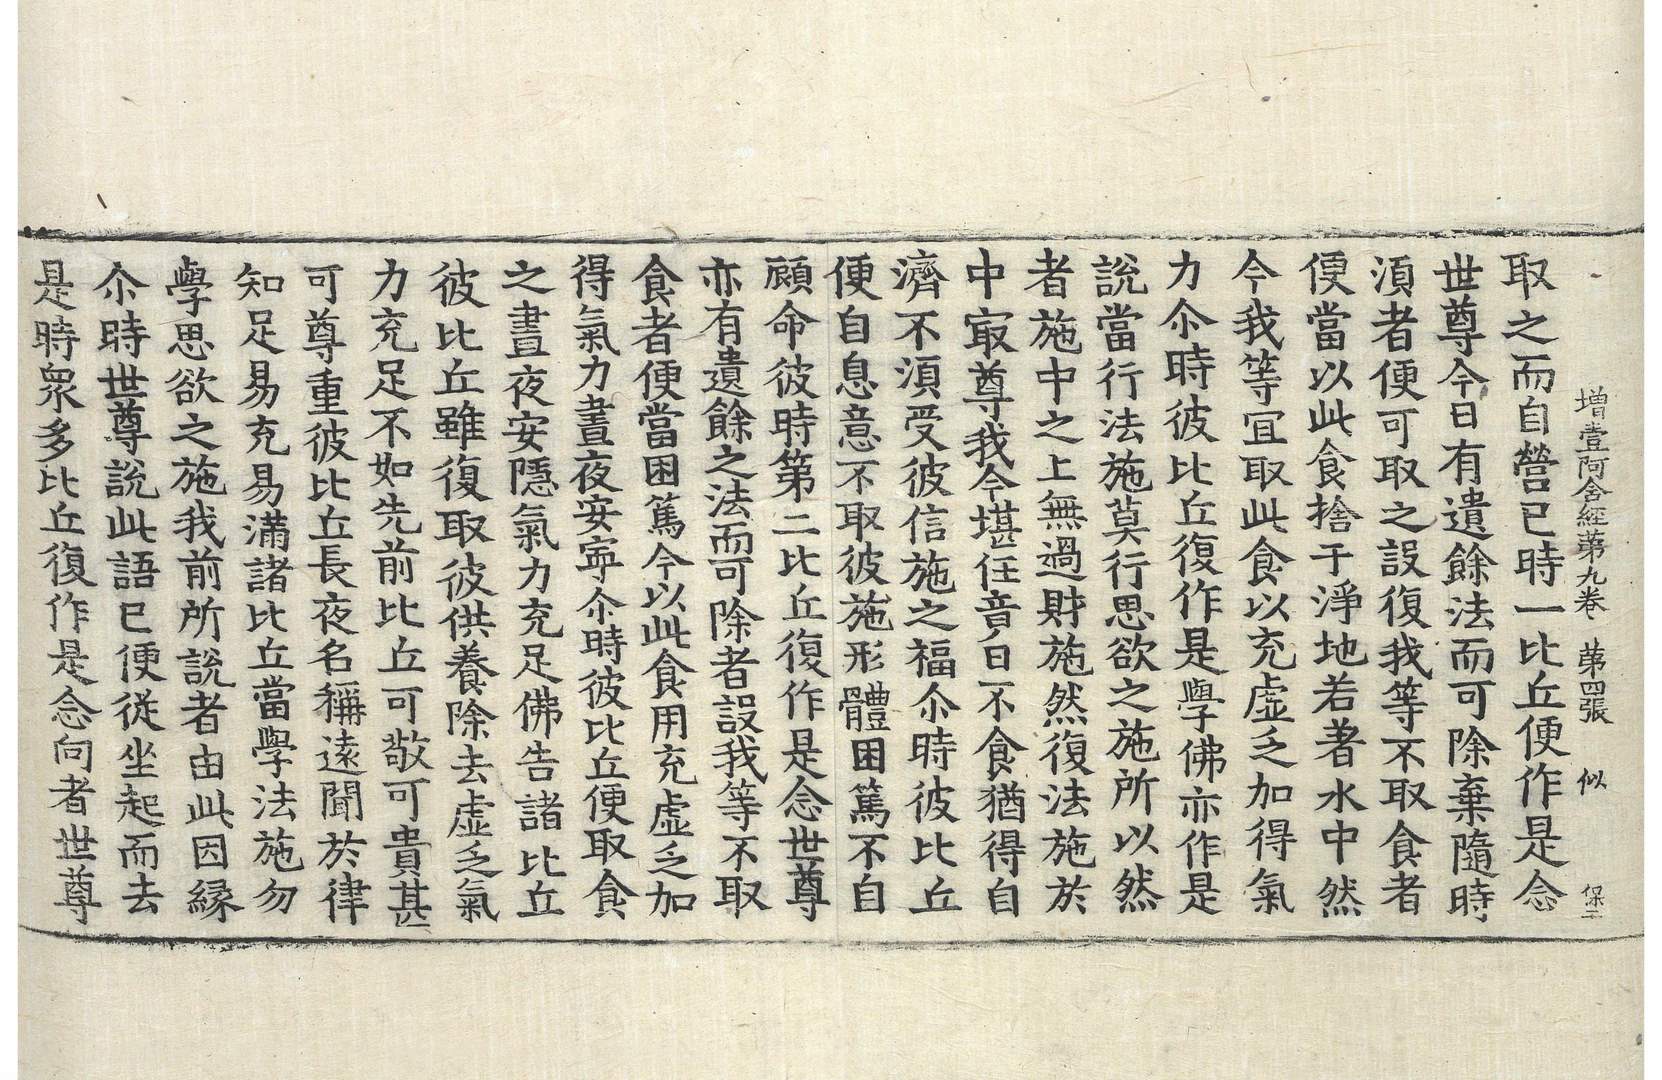 增壹阿含經第九卷 第四張 似 保一
取之而自營已時一比丘便作是念
世尊今日有遺餘法而可除棄隨時
湏者便可取之設復我等不取食者
便當以此食捨于淨地若著水中然
今我等宜取此食以充虛乏加得氣
力尒時彼比丘復作是學佛亦作是
說當行法施莫行思欲之施所以然
者施中之上無過財施然復法施於
中㝡尊我今堪任音白不食猶得自
濟不湏受彼信施之福尒時彼比丘
便自息意不取彼施形體困篤不自
顧命彼時第二比丘復作是念世尊
亦有遺餘之法而可除者設我等不取
食者便當困篤今以此食用充虛乏加
得氣力晝夜安寧尒時彼比丘便取食
之晝夜安隱氣力充足佛告諸比丘
彼比丘雖復取彼供養除去虛乏氣
力充足不如先前比丘可敬可貴甚
可尊重彼比丘長夜名稱遠聞於律
知足易充易滿諸比丘當學法施勿
學思欲之施我前所說者由此因緣
尒時世尊說此語已便從坐起而去
是時衆多比丘復作是念向者世尊